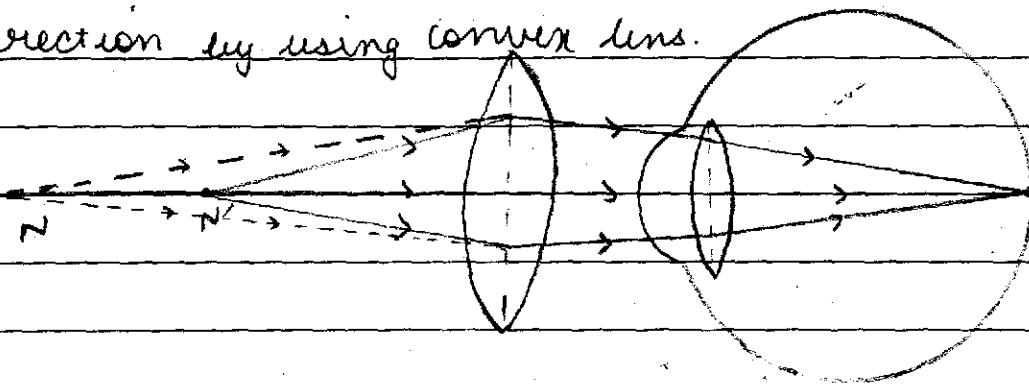 rection by using convex lens.
N N'